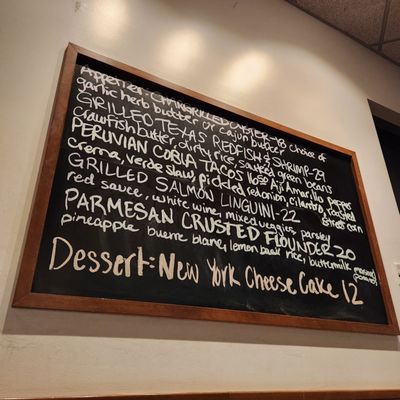 Appetizer: CHARGRILLED OYSTER-18
garlic herb butter or cajun butter choice of
GRILLED TEXAS REDFISH & SHRIMP-29
crawfish butter, dirty rice, sauteed green beans
PERUVIAN COBIA TACOS Aji Amarillo pepper
crema, verde slaw, pickled red onion, cilantro, roasted street corn
GRILLED SALMON LINGUINI-22
red sauce, white wine, mixed veggies, parsley
PARMESAN CRUSTED FLOUNDER 20
pineapple buerre blanc, lemon basil rice, buttermilk mashed potatoes
Dessert: New York Cheese Cake 12